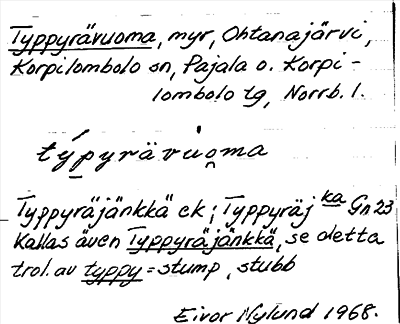 Typpyrävuoma, myr, Ohtanajärvi,
Korpilombolo sn, Pajala o. Korpi-
lombolo tg, Norrb. l.
týpyrävuo̯ma
Typpyräjänkkä ek; Typpyräj ka Gn 23
Kallas även Typpyräjänkkä, se detta
trol. av typpy = stump, stubb
Eivor Nylund 1968.